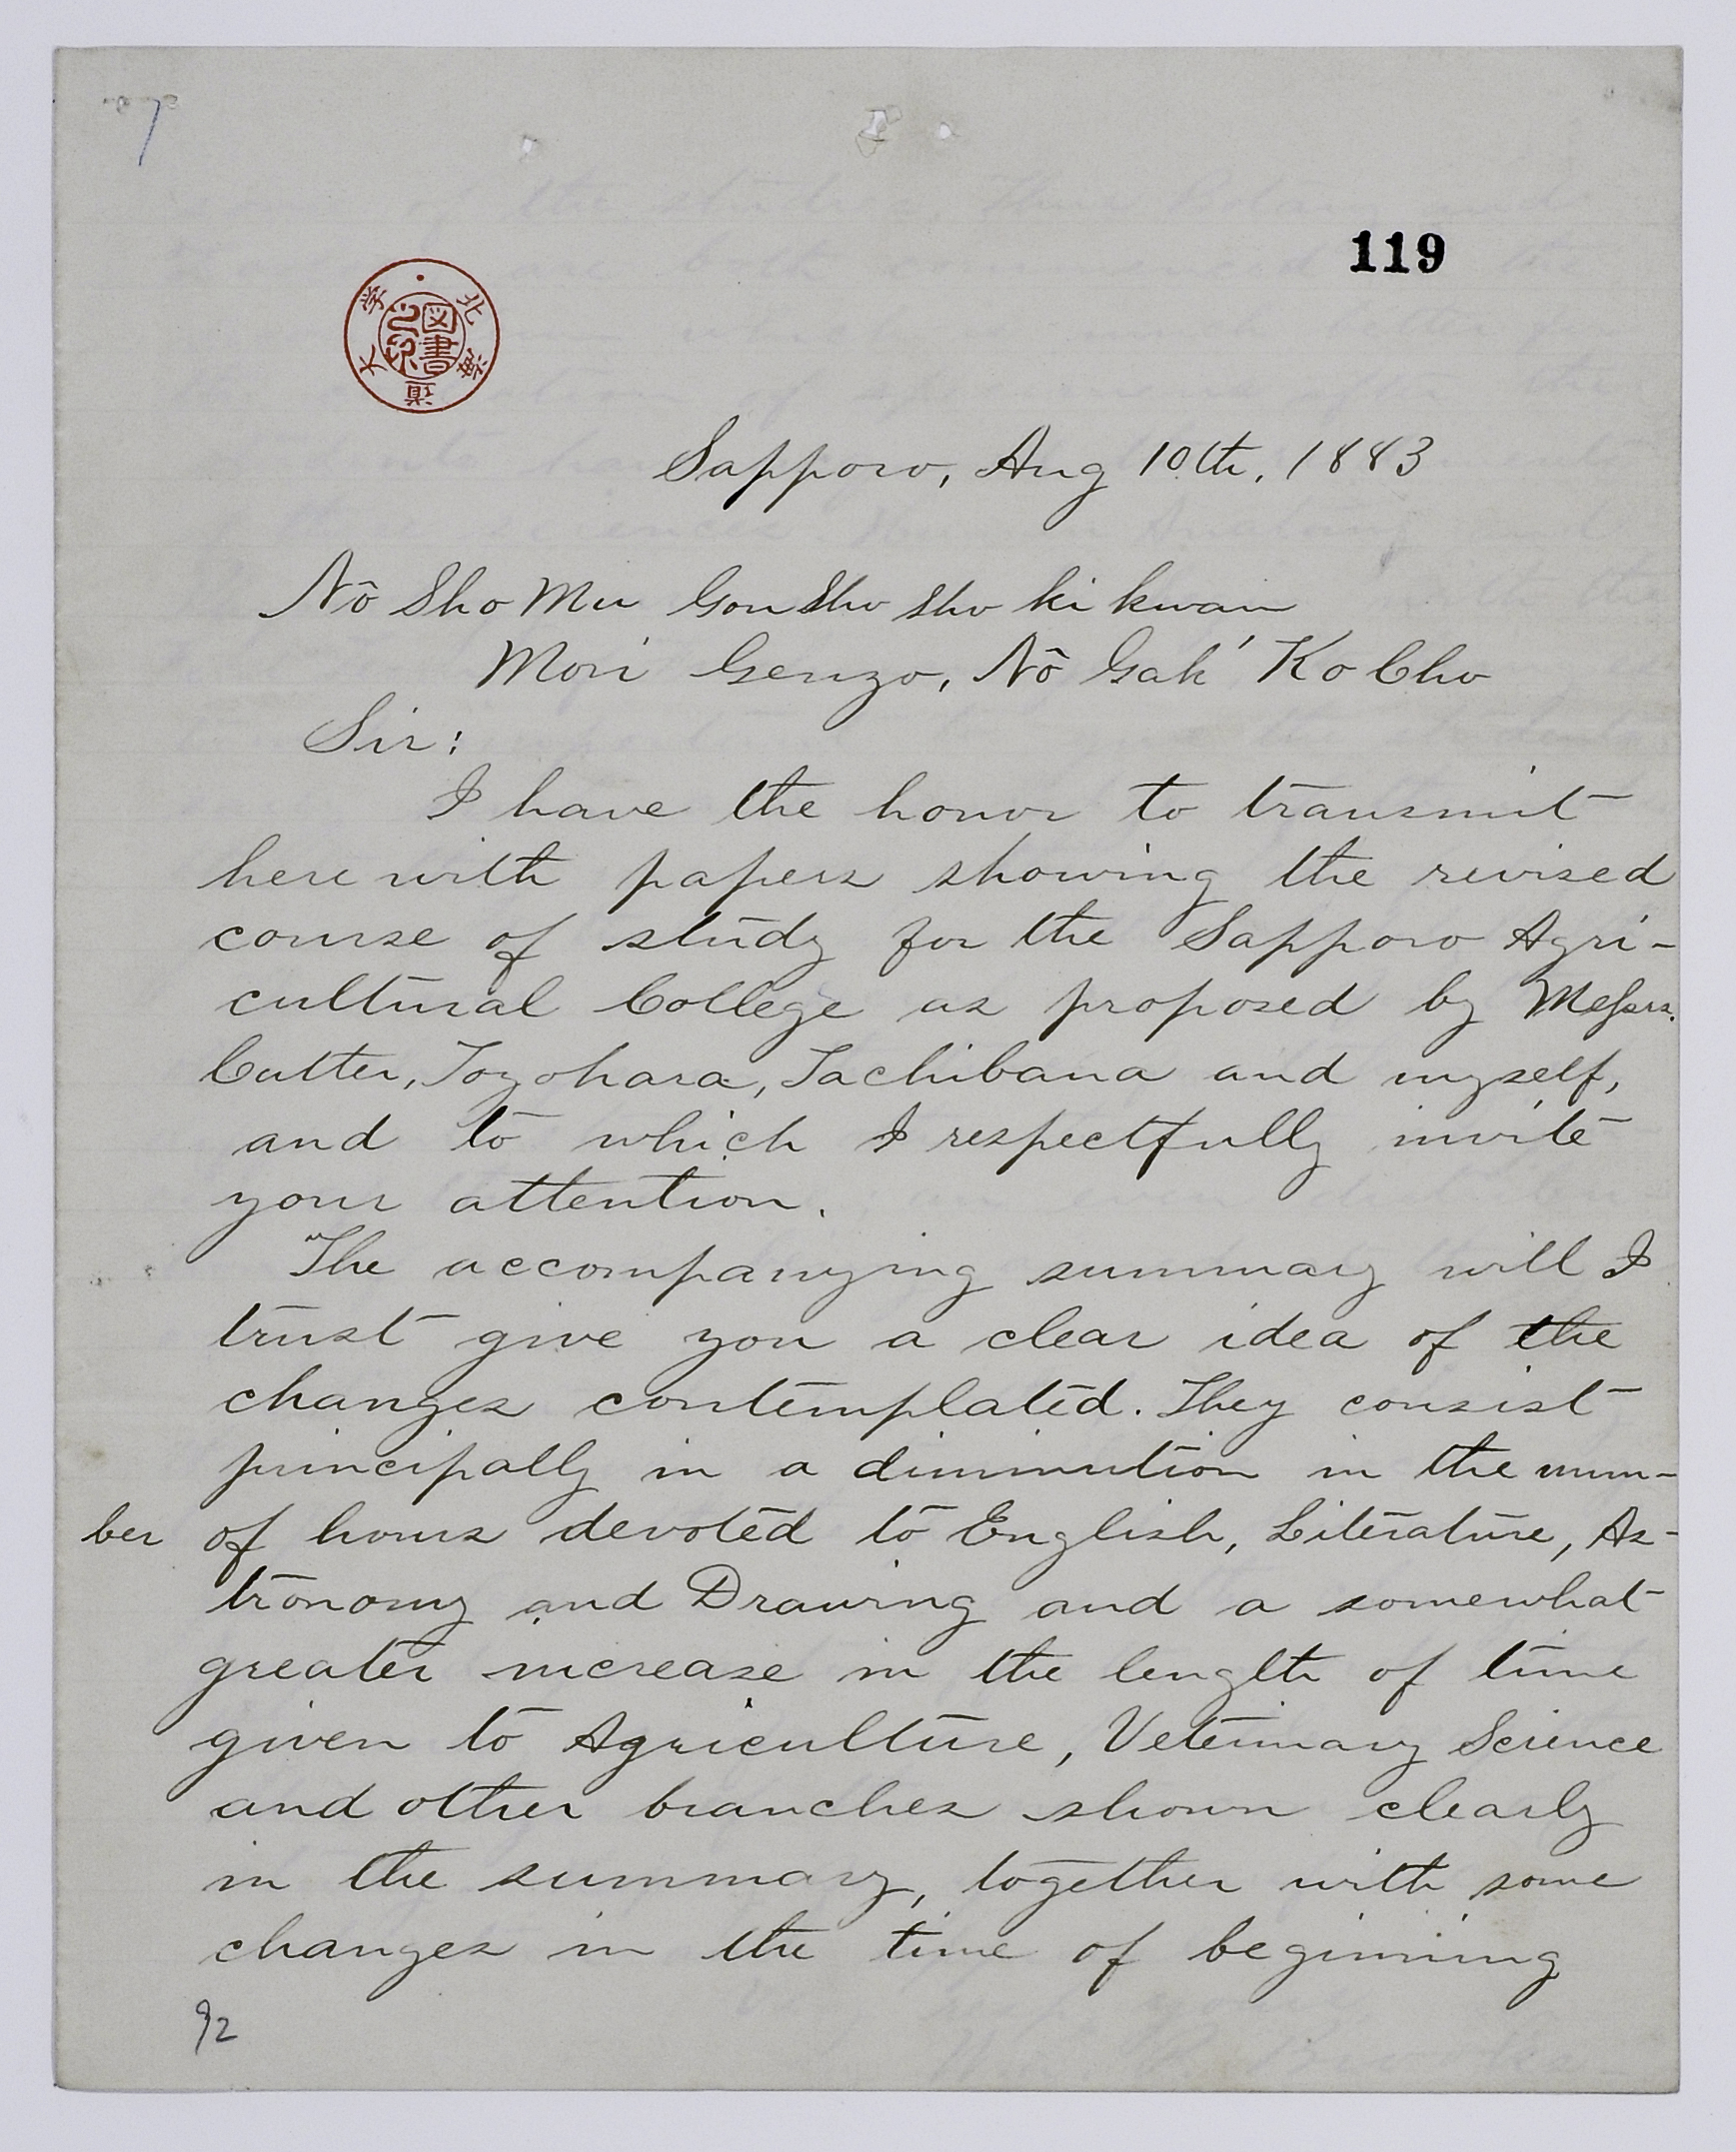 7
119
北海道大学
図書之印
Sapporo, Aug 10th, 1883
Nô Sho Mu Gon Sho Sho ki kwan
Mori Genzo, Nô Gak' Ko Cho
Sir:
I have the honor to transmit
here with papers showing the revised
course of study for the Sapporo Agri-
cultural College as proposed by Messrs.
Cutter, Toyohara, Tachibana and myself,
and to which I respectfully invite
your attention.
The accompanying summary will I
trust give you a clear idea of the
changes contemplated. They consist
principally in a diminution in the num-
ber of hours devoted to English, Literature, As-
tronomy and Drawing and a somewhat
greater increase in the length of time
given to Agriculture, Veterinary Science
and other branches shown clearly
in the summary, together with some
changes in the time of beginning
92